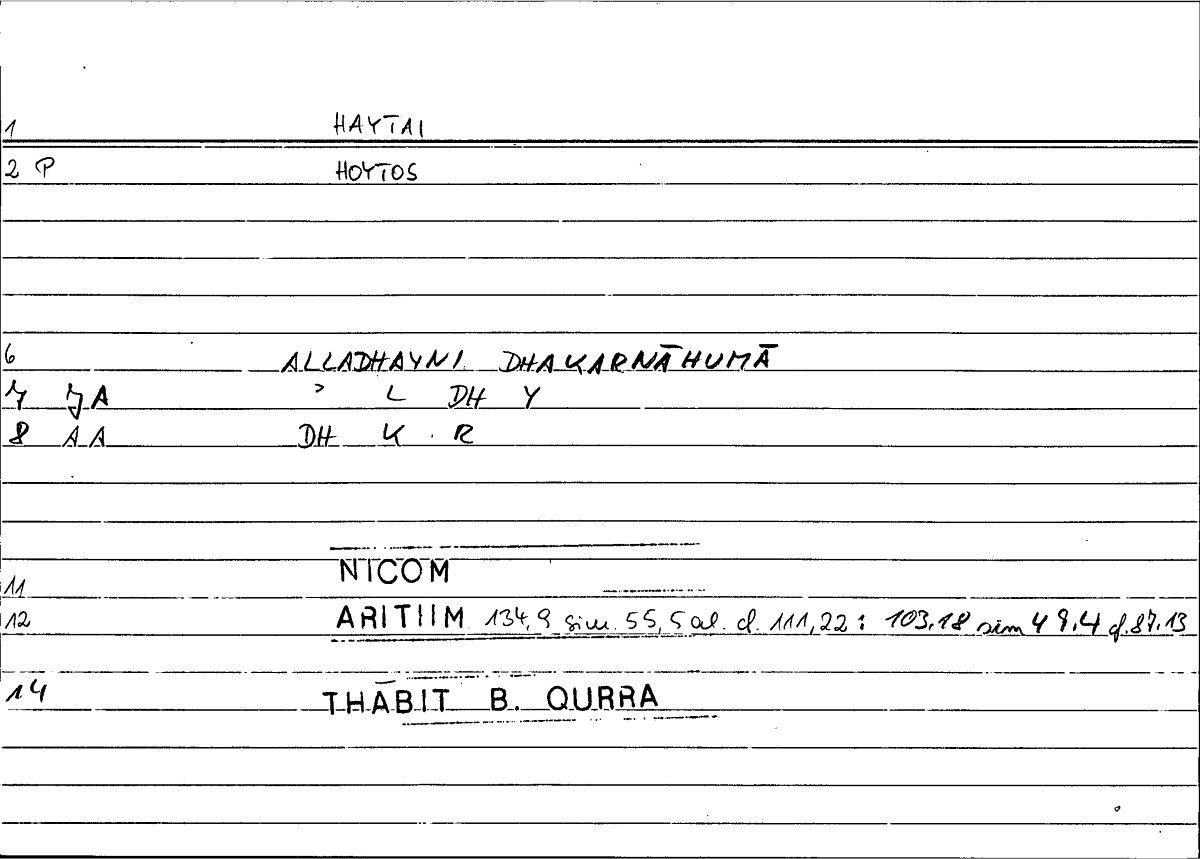 1 HAYTAI
2 P HOYTOS
6 ALLADHAYNI DHAKARNĀHUMĀ
7 JA ʾ L DH Y
8 AA DH K R
11 NICOM
12 ARITIIM 134,9 sim. 55,5 al. cf. 111,22 : 103.18 sim 49.4 cf. 87.13
14 THĀBIT B. QURRA